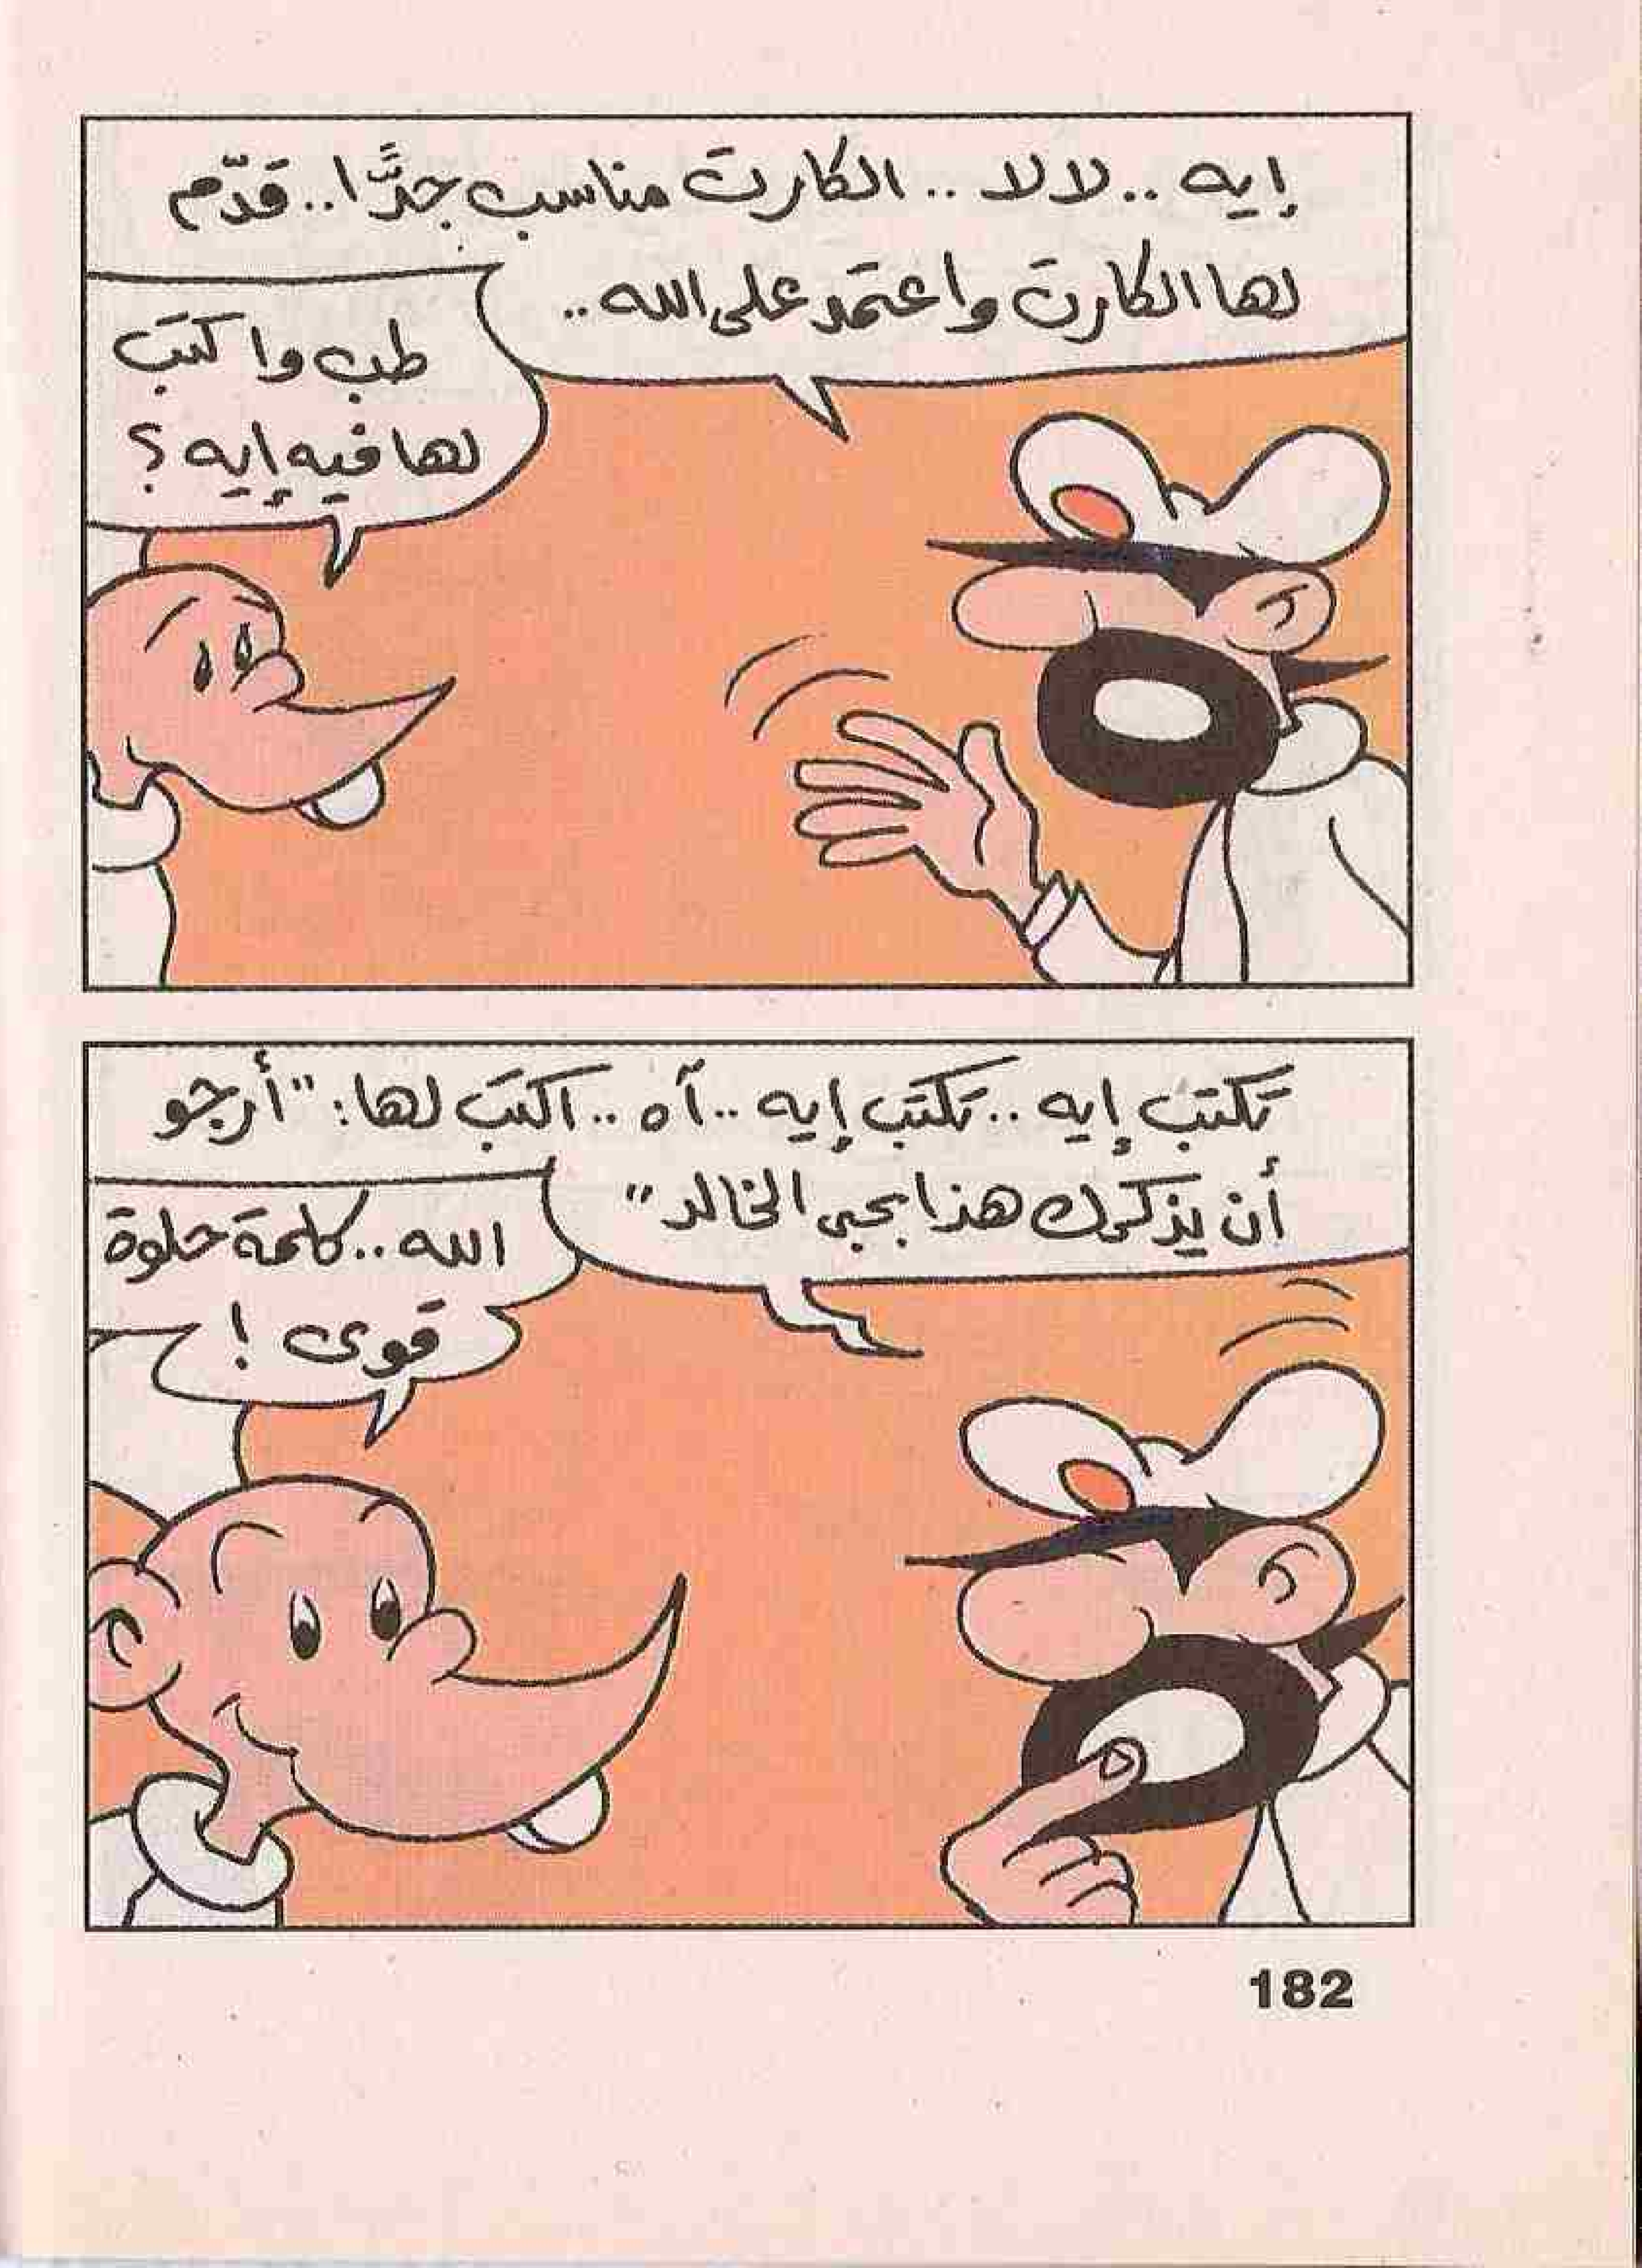 إيه .. لا لا .. الكارت مناسب جدًّا .. قدّم
لها الكارت واعتمد على الله ..
طب واكتب
لها فيه إيه ؟
تكتب إيه .. تكتب إيه .. آه .. اكتب لها : "أرجو
أن يذكرك هذا بحبى الخالد"
الله .. كلمة حلوة
قوى !
182